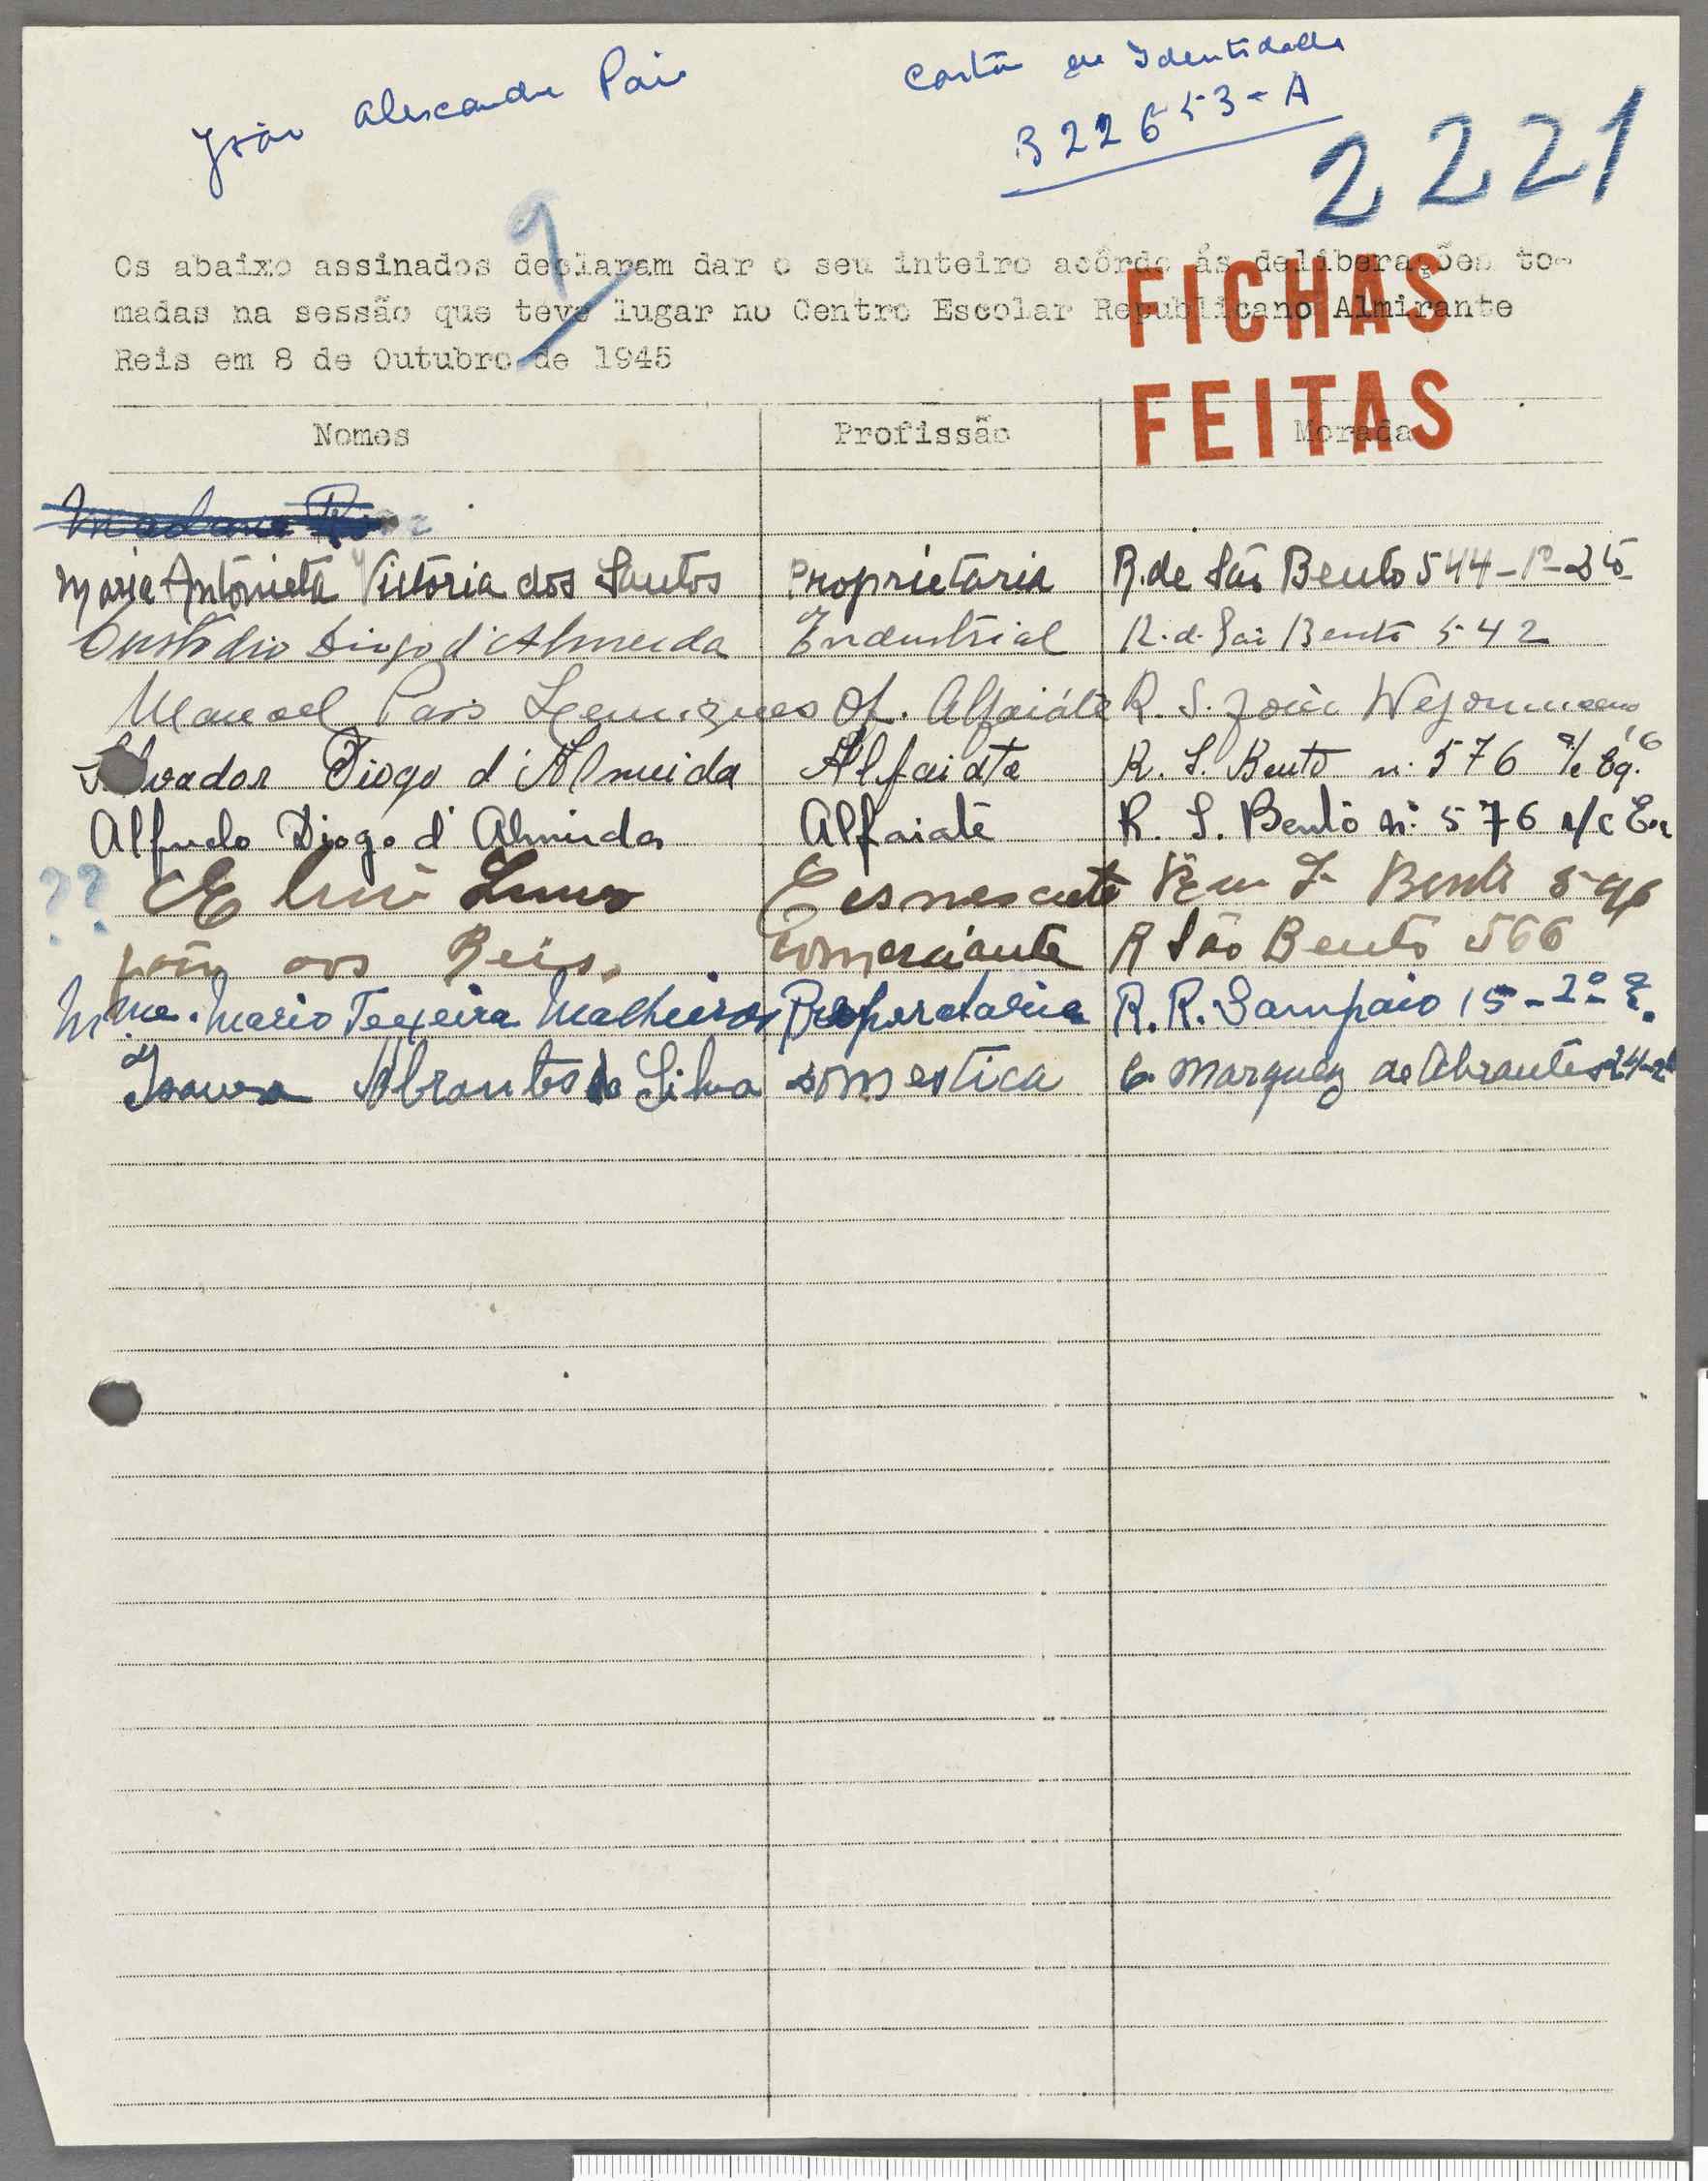 João Alexandre Pais
Cartão de Identidade
322653-A
2221
9
Os abaixo assinados declaram dar o seu inteiro acôrdo ás deliberações to-
madas na sessão que teve lugar no Centro Escolar Republicano Almirante
Reis em 8 de Outubro de 1945
FICHAS
FEITAS
Nomes Profissão Morada
Maria Antónieta Victória dos Santos Proprietária R. de São Bento 544-1º-Dto
Custódio Diogo d'Almeida Industrial R. d. São Bento 542
Manoel Pais Of. Alfaiáte R. S. João 16
Diogo d'Almeida Alfaiate R. S. Bento n. 576 r/c Eq.
Alfredo Diogo d'Almeida Alfaiate R. S. Bento nº 576 r/c
?? Bento
João dos Reis. Comerciante R São Bento 566
Mme. Mario Teixeira Malheiros R. R. Sampaio 15-2º
Isaura Abrantes da Silva domestica C. Marquez de Abrantes 24-2º